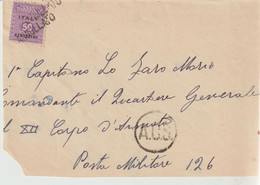 ITALY
1° Capitano Lo Faro Mario
Comandante il Quartiere Generale
del XII Corpo d'Armata
A.C.S.
Posta Militare 126